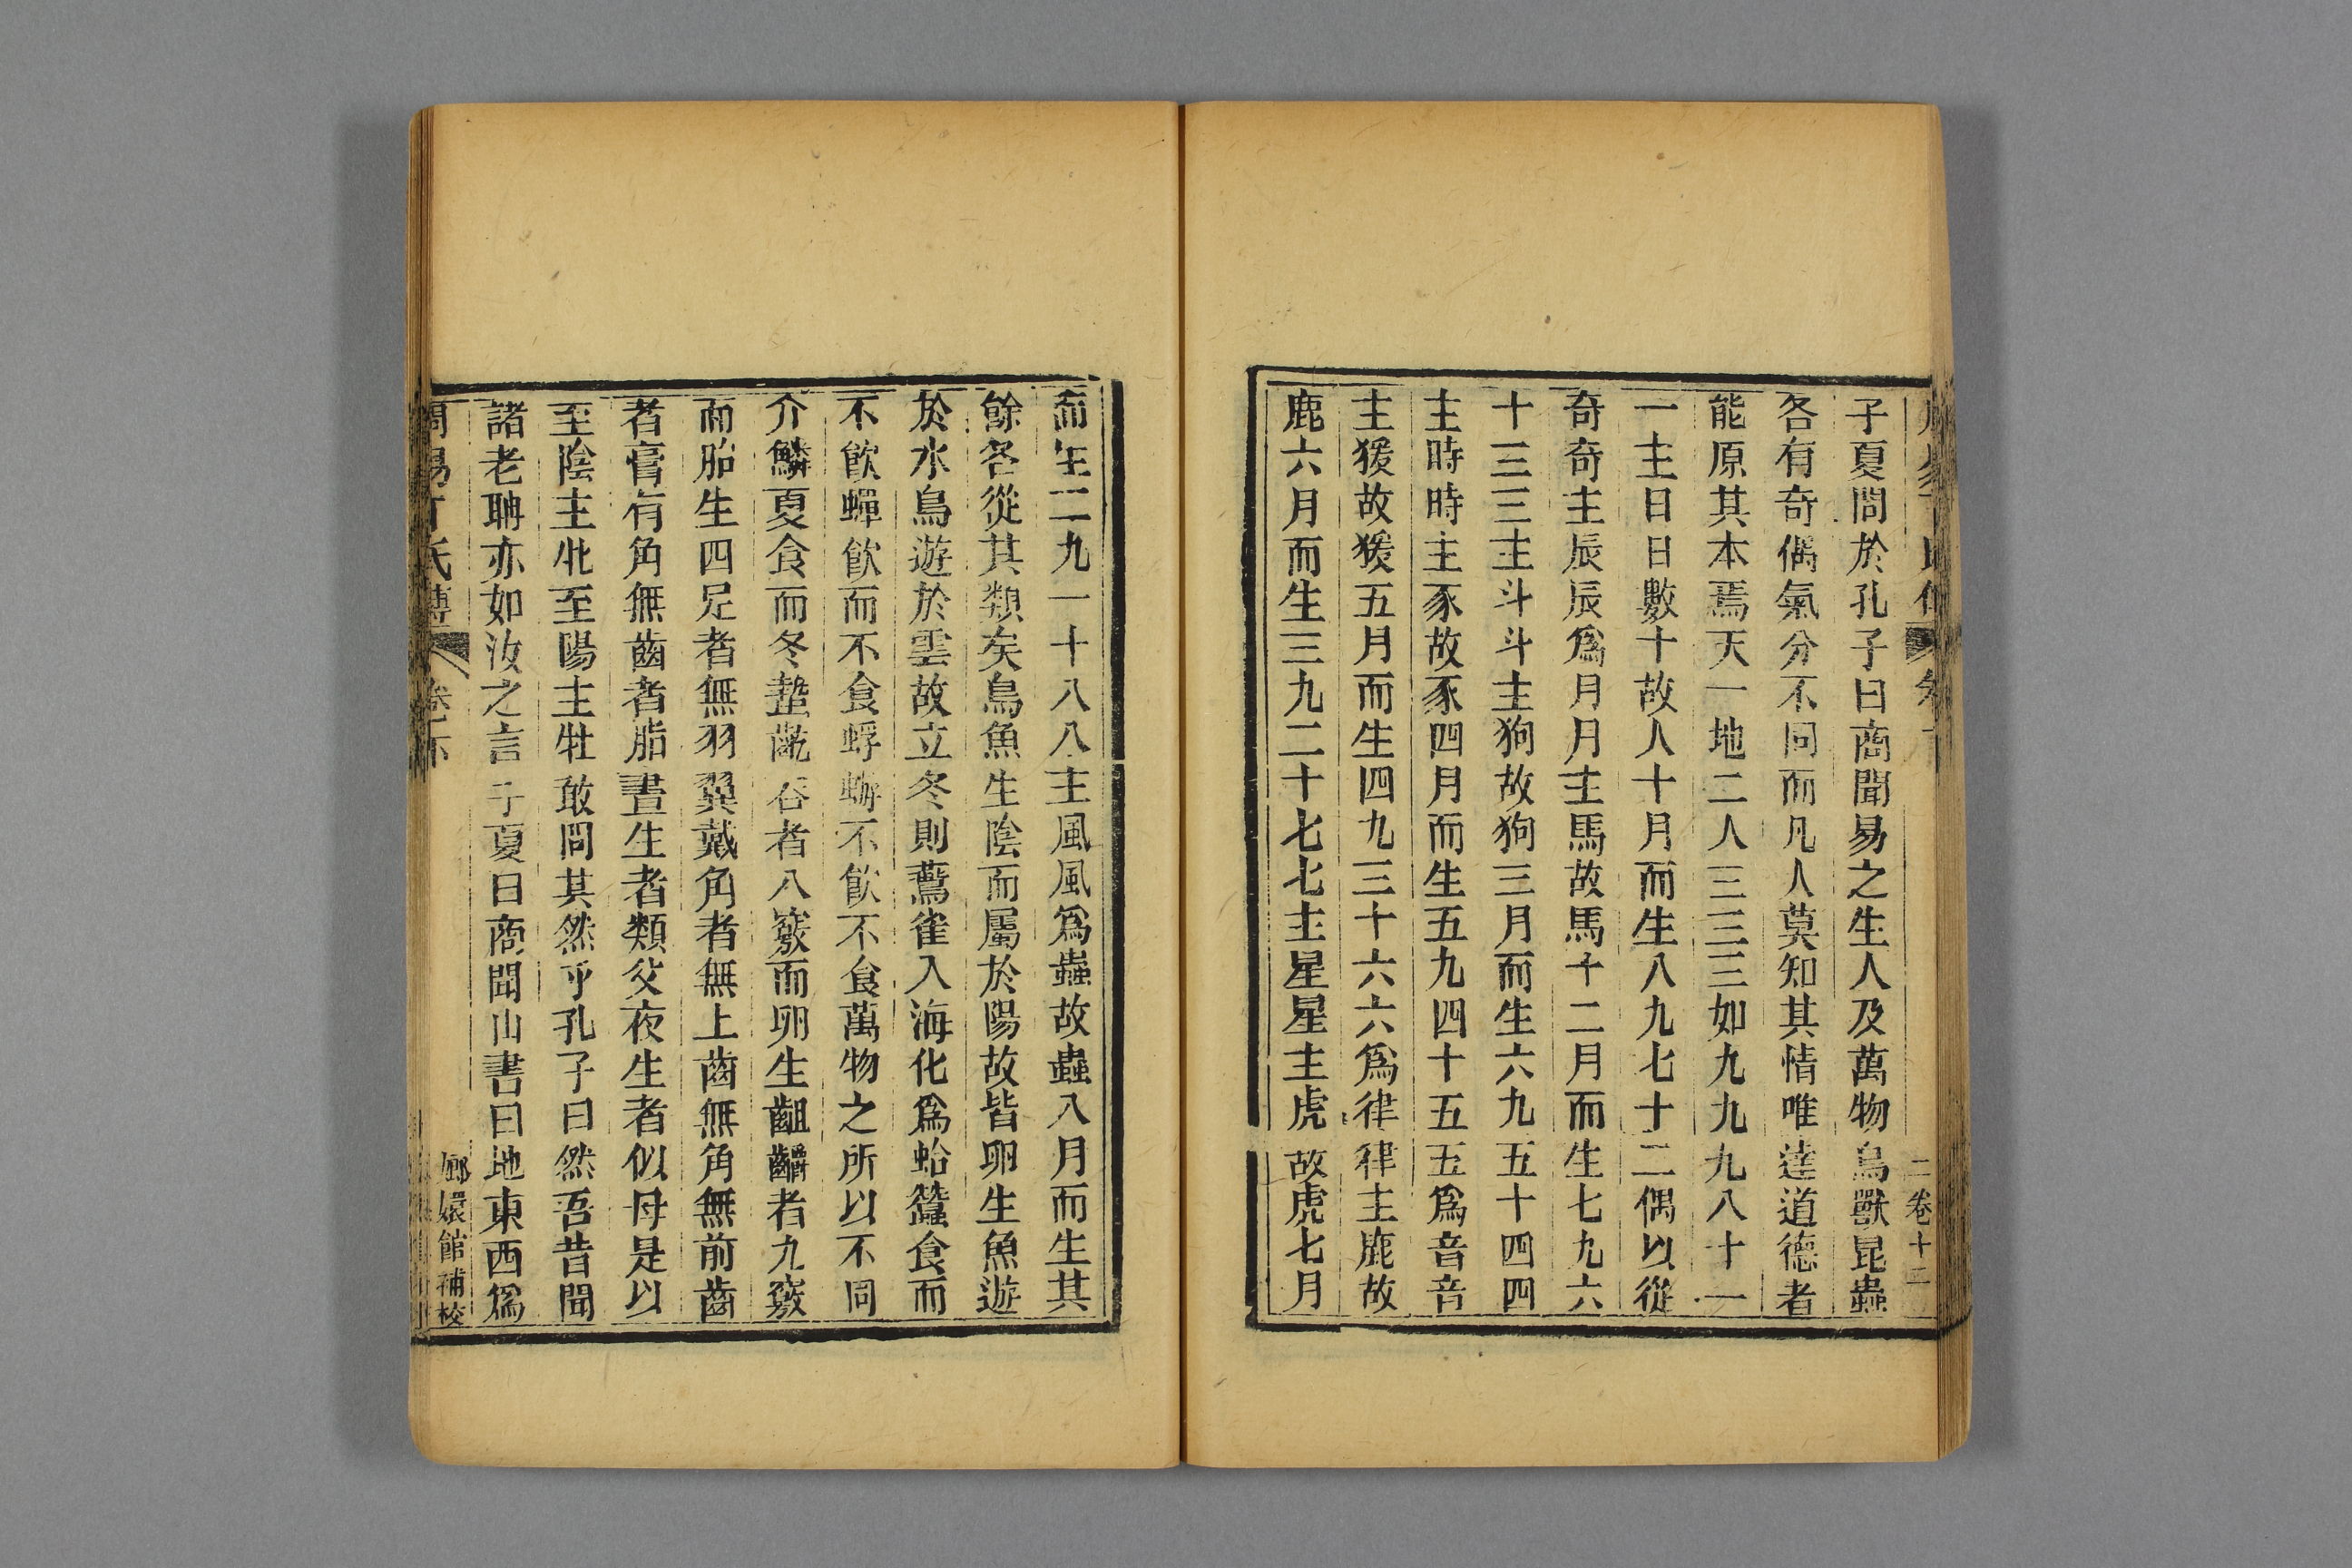 二卷十二
子夏問於孔子曰商聞易之生人及萬物鳥獸昆蟲
各有奇偶氣分不同而凡人莫知其情唯達道德者
能原其本焉天一地二人三三三如九九九八十一
一主日日數十故人十月而生八九七十二偶以從
奇奇主辰辰爲月月主馬故馬十二月而生七九六
十三三主斗斗主狗故狗三月而生六九五十四四
主時時主豕故豕四月而生五九四十五五爲音音
主猨故猨五月而生四九三十六六爲律律主鹿故
鹿六月而生三九二十七七主星星主虎故虎七月
而生二九一十八八主風風爲蟲故蟲八月而生其
餘各從其類矣鳥魚生陰而屬於陽故皆卵生魚遊
於水鳥遊於雲故立冬則鷰雀入海化爲蛤蠶食而
不飮蟬飮而不食蜉蝣不飮不食萬物之所以不同
介鱗夏食而冬蟄齕吞者八竅而卵生齟嚼者九竅
而胎生四足者無羽翼戴角者無上齒無角無前齒
者膏有角無齒者脂晝生者類父夜生者似母是以
至陰主牝至陽主牡敢問其然乎孔子曰然吾昔聞
諸老聃亦如汝之言子夏曰商聞山書曰地東西爲
周易丁氏傳 卷下 嫏嬛館補校